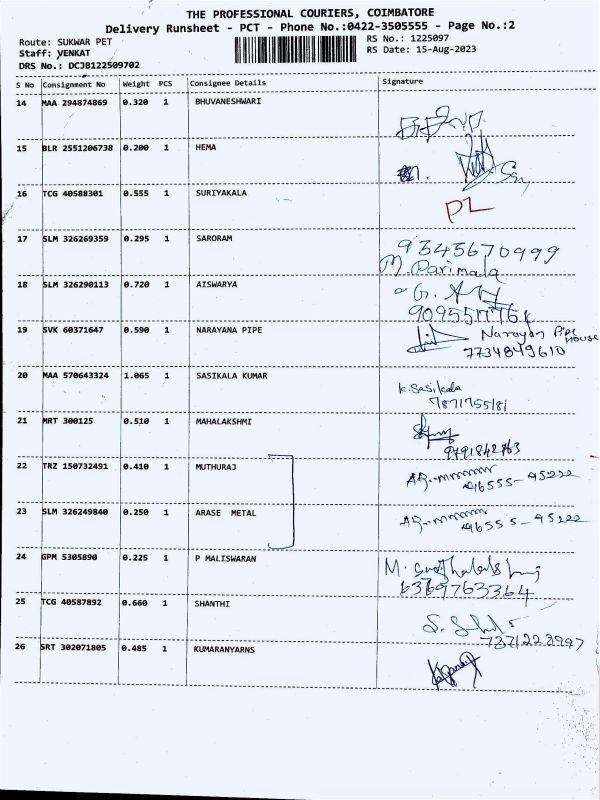 THE PROFESSIONAL COURIERS, COIMBATORE
Delivery Runsheet - PCT - Phone No.:0422-3505555 - Page No.:2
Route: SUKWAR PET RS No.: 1225097
Staff: VENKAT RS Date: 15-Aug-2023
DRS No.: DCJB122509702
S No Consignment No Weight PCS Consignee Details Signature
14 MAA 294874869 0.320 1 BHUVANESHWARI
15 BLR 2551206738 0.200 1 HEMA
16 TCG 40588301 0.555 1 SURIYAKALA
PZ
17 SLM 326269359 0.295 1 SARORAM 9345670999
M. Parimala
18 SLM 326290113 0.720 1 AISWARYA
19 SVK 60371647 0.590 1 NARAYANA PIPE Narayan Pipe House
7734849610
20 MAA 570643324 1.065 1 SASIKALA KUMAR
K. Sasikala
7871755181
21 MRT 300125 0.510 1 MAHALAKSHMI
9791842763
22 TRZ 150732491 0.410 1 MUTHURAJ
96555-95222
23 SLM 326249840 0.250 1 ARASE METAL
96555-95222
24 GPM 5305890 0.225 1 P MALISWARAN
6369763364
25 TCG 40587892 0.660 1 SHANTHI
7371228997
26 SRT 302071805 0.485 1 KUMARANYARNS